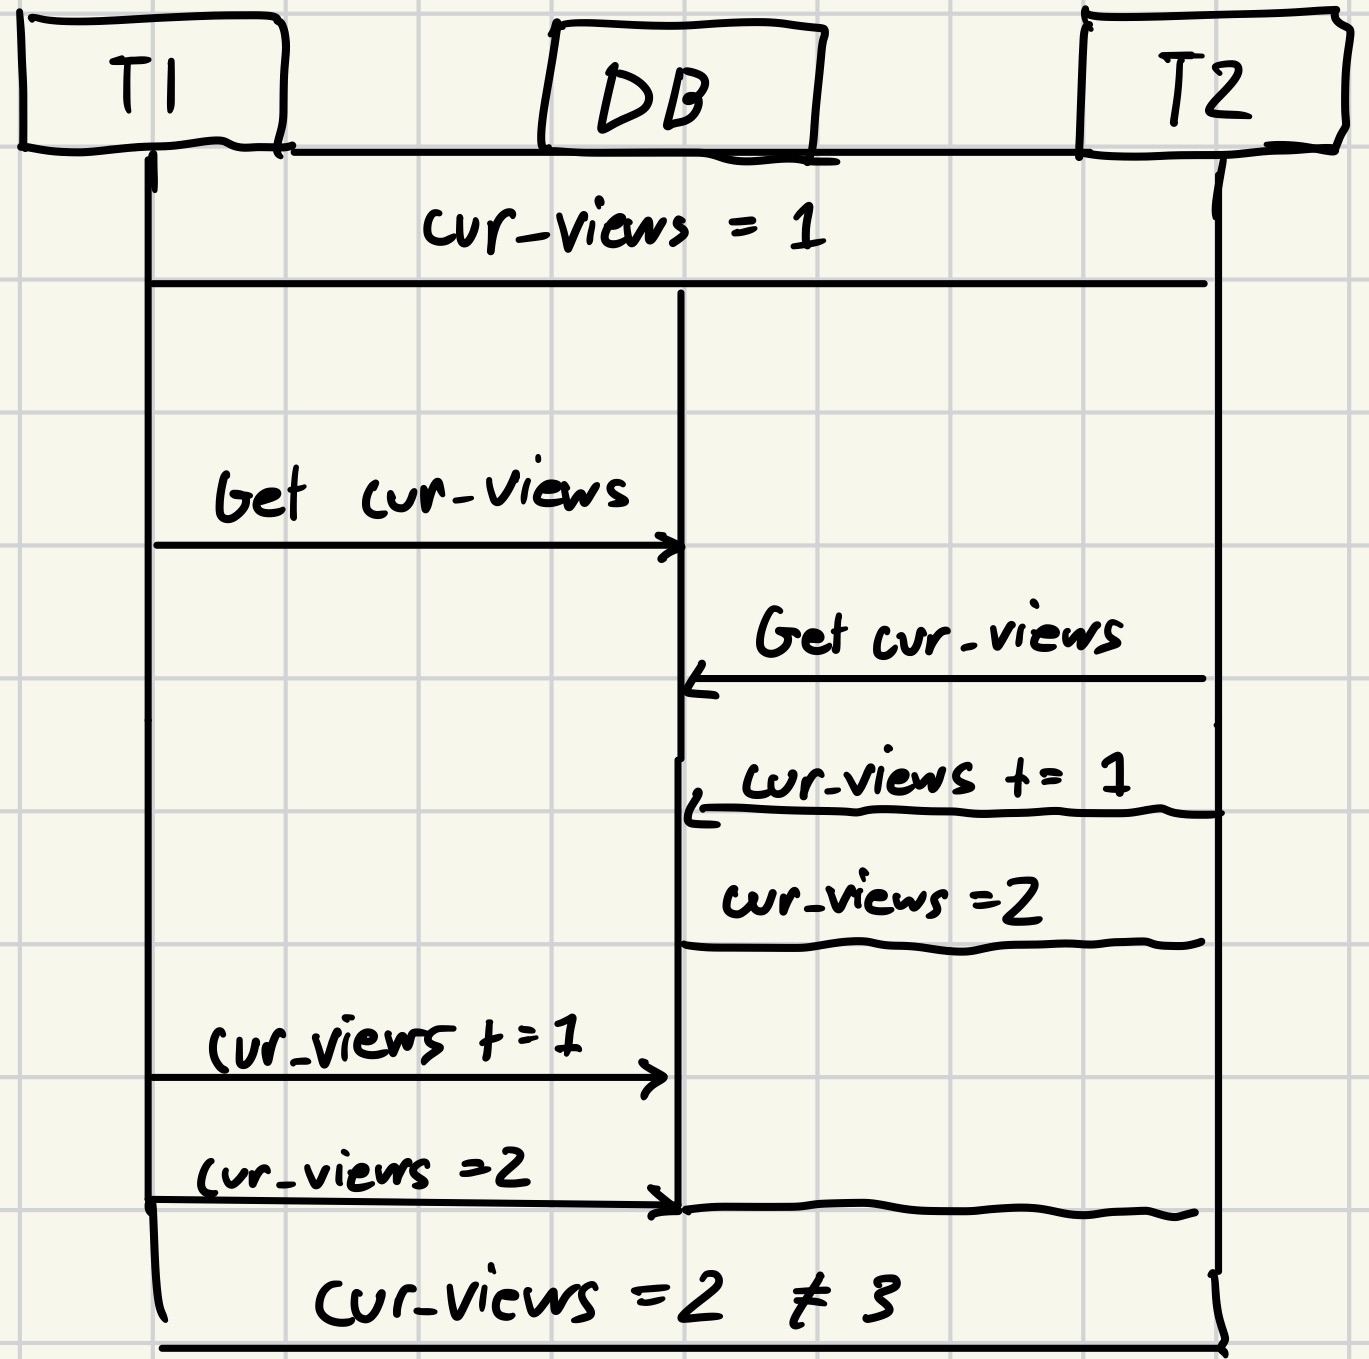 T1 DB T2
cur_views = 1
Get cur_views
Get cur_views
cur_views += 1
cur_views = 2
cur_views += 1
cur_views = 2
cur_views = 2 ≠ 3